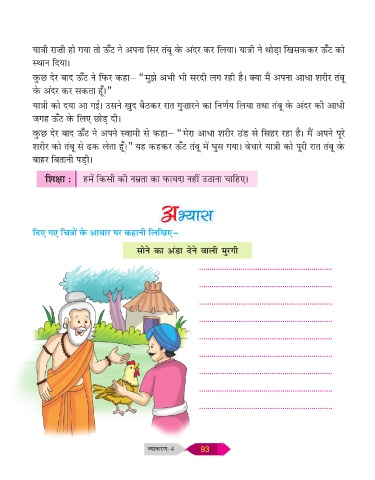 यात्री राजी हो गया तो ऊँट ने अपना सिर तंबू के अंदर कर लिया। यात्री ने थोड़ा खिसककर ऊँट को
स्थान दिया।
कुछ देर बाद ऊँट ने फिर कहा– “मुझे अभी भी सरदी लग रही है। क्या मैं अपना आधा शरीर तंबू
के अंदर कर सकता हूँ।”
यात्री को दया आ गई। उसने खुद बैठकर रात गुजारने का निर्णय लिया तथा तंबू के अंदर की आधी
जगह ऊँट के लिए छोड़ दी।
कुछ देर बाद ऊँट ने अपने स्वामी से कहा– “मेरा आधा शरीर ठंड से सिहर रहा है। मैं अपने पूरे
शरीर को तंबू से ढक लेता हूँ।” यह कहकर ऊँट तंबू में घुस गया। बेचारे यात्री को पूरी रात तंबू के
बाहर बितानी पड़ी।
शिक्षा : हमें किसी की नम्रता का फायदा नहीं उठाना चाहिए।
अभ्यास
दिए गए चित्रों के आधार पर कहानी लिखिए–
सोने का अंडा देने वाली मुरगी
व्याकरण-4 93